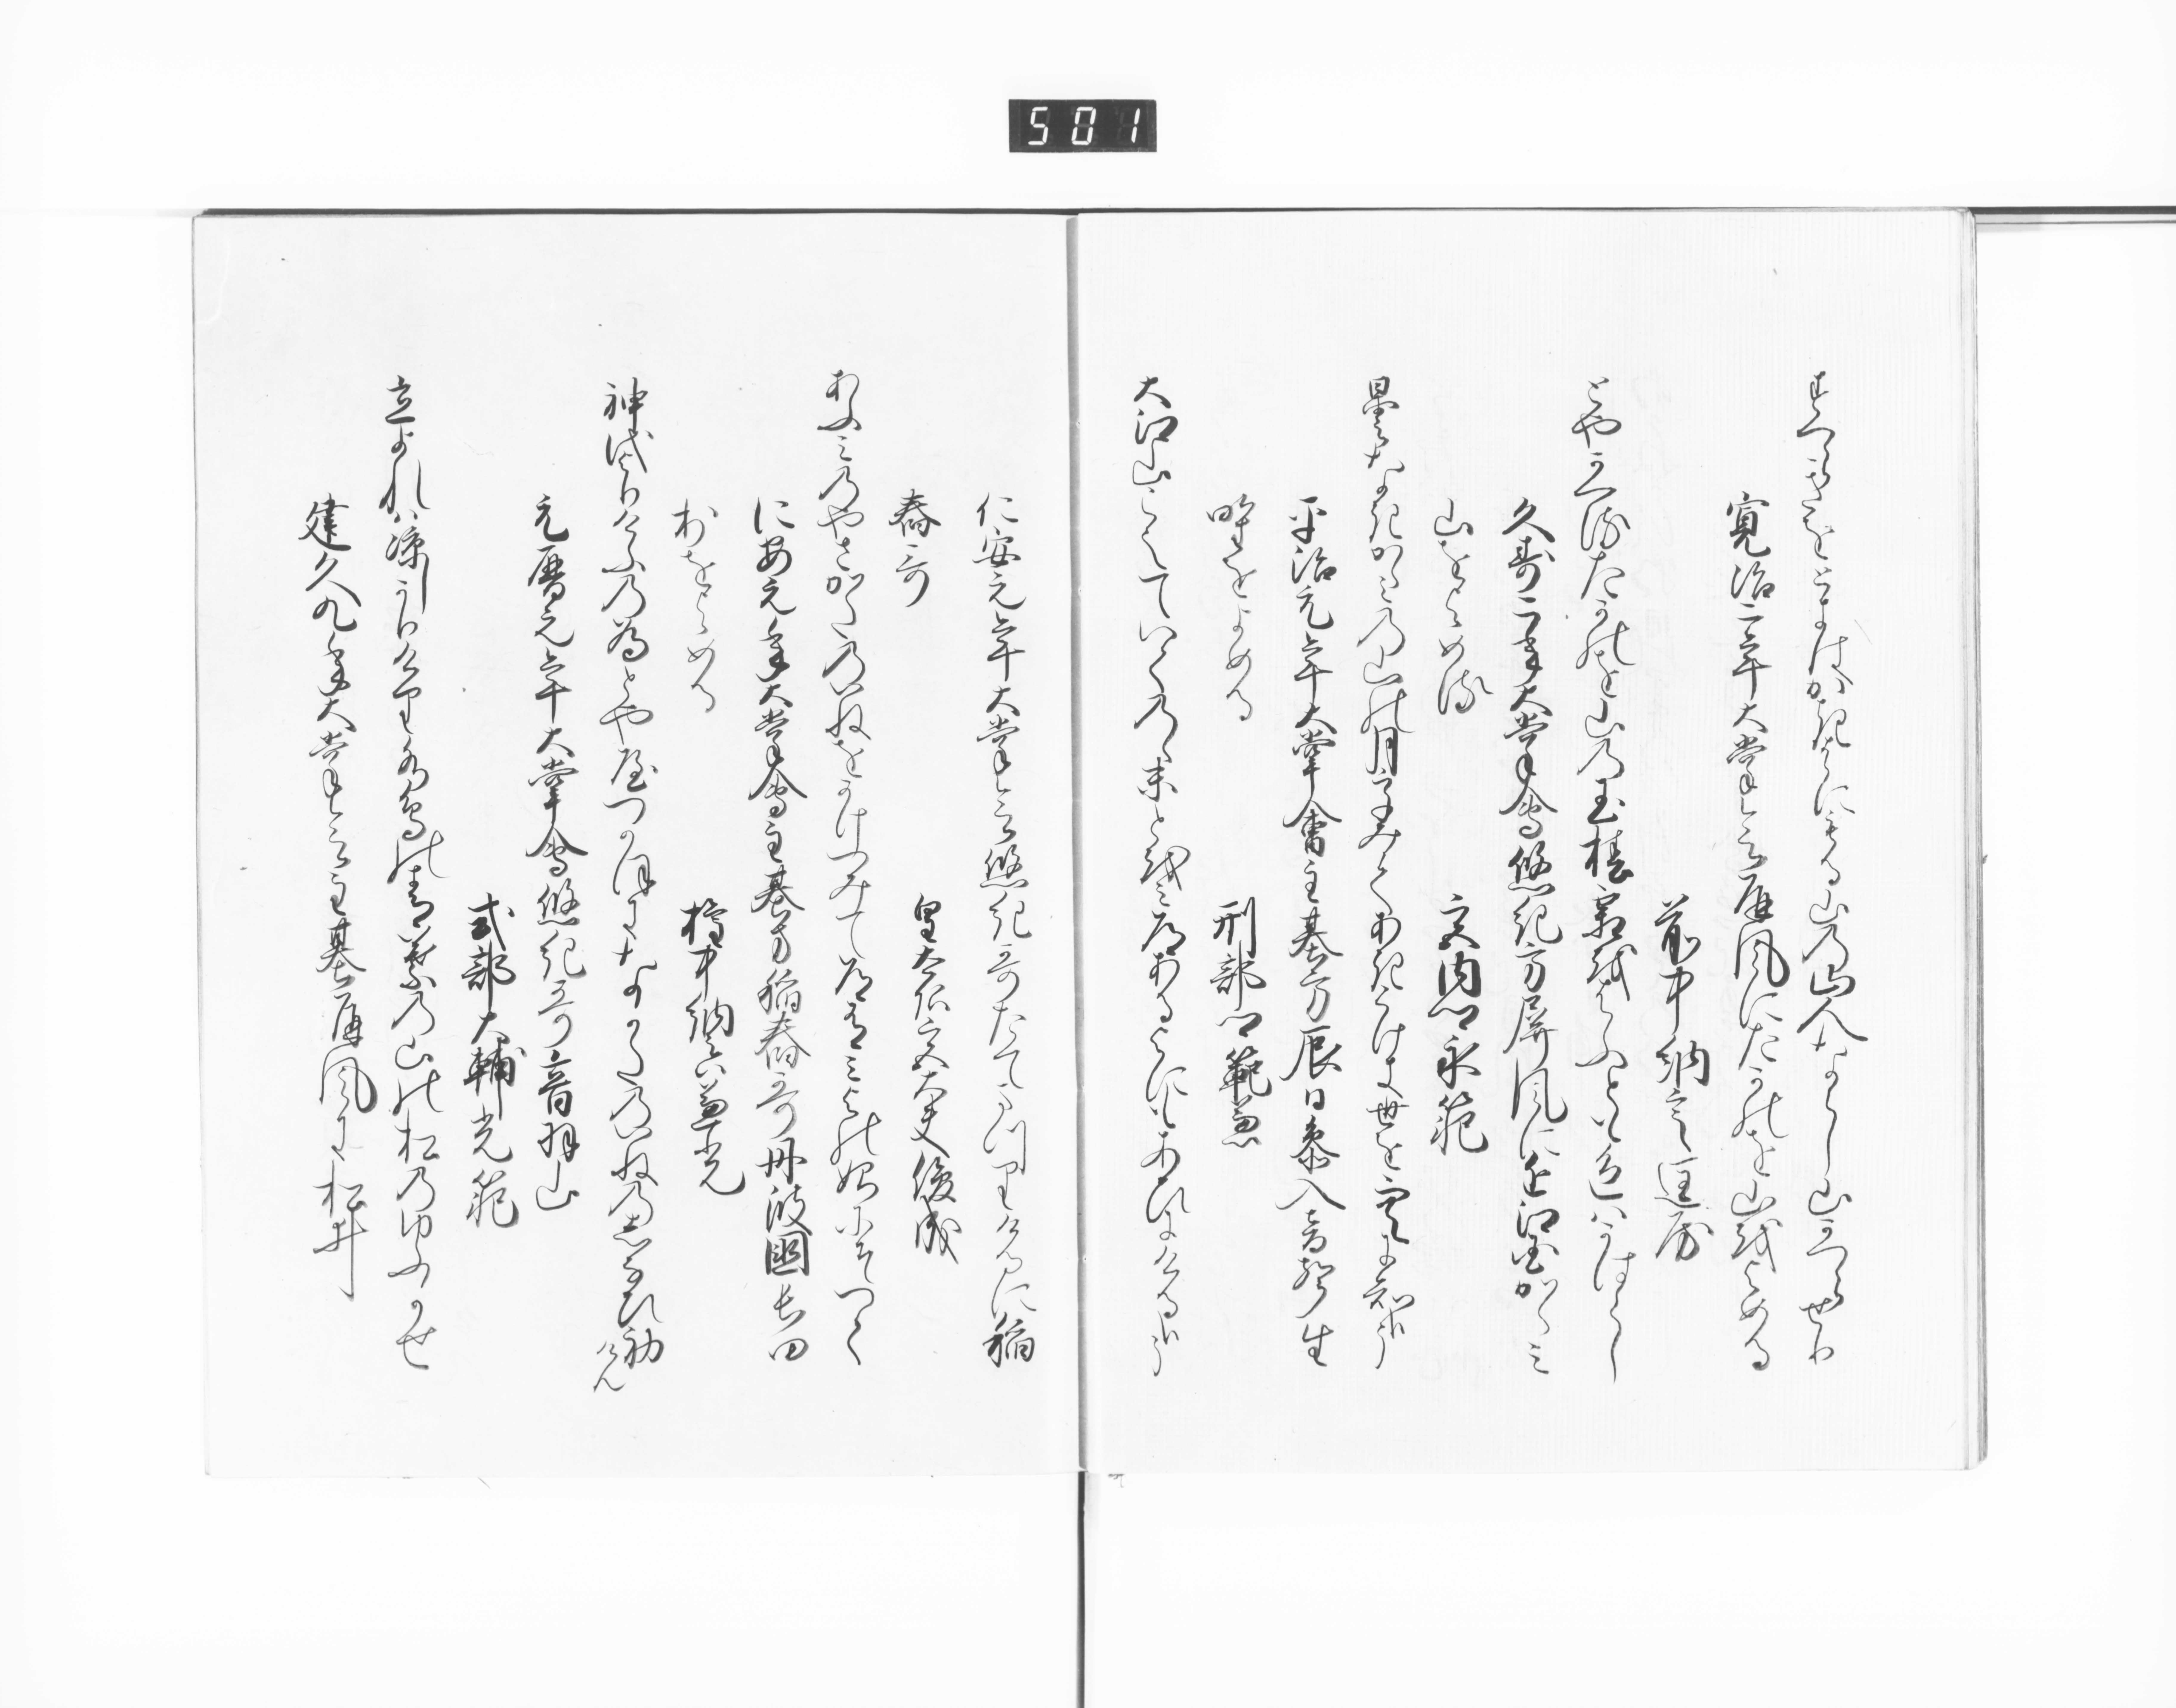 501
すへらきをときはかきはにもる山の山人ならし山かつらせり
寛治二年大嘗会屏風にたかのを山をよめる
前中納言匡房
とやかへるたかのを山の玉椿霜をはふとも色はかはらし
久寿二年大嘗會悠紀方屏風に近江国かゝみ
山をよめる　宮内卿永範
曇なきかゝみの山の月をみてあきらけき世を空に知哉
平治元年大嘗會主基方辰日参入音聲生
野をよめる　刑部卿範兼
大江山こえていくのゝ末とをみ道あるよにもあひにける哉
仁安元年大嘗会悠紀哥たてまつりけるに稲
舂哥　皇太后宮大夫俊成
あふみのやさかたのいねをかけつみて道有みよの始にそつく
に安元年大嘗會主基方稲舂哥丹波國長田
村をよめる　権中納言兼光
神代よりけふの為とや屋つかほになかたのいねのしなひ初けん
元暦元年大嘗會悠紀哥音羽山
式部大輔光範
立よれは涼しかりけり水鳥の青葉の山の松のゆふかせ
建久九年大嘗会主基屏風に松井